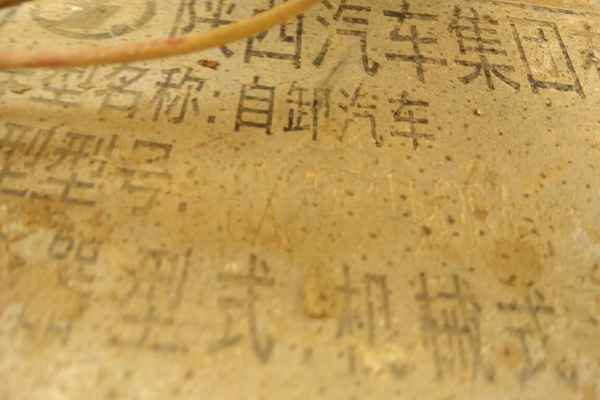 陕西汽车集团
型名称：自卸汽车
型型号
器型式 机械式